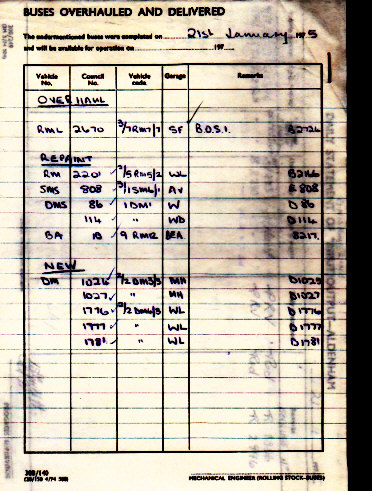 BUSES OVERHAULED AND DELIVERED
The undermentioned buses were completed on 21st January 1975
and will be available for operation on 197
Vehicle No. Council No. Vehicle code. Garage Remarks
OVERHAUL
RML 2670 3/7RM7/7 SF B.O.S.1. B2726
REPAINT
RM 2201 2/5RM5/2 WL B2166
SMS 808 2/1SML/1 AV B 808
DMS 86 1DM1 W D 86
114 " WD D114
BA 18 9 RM12 BEA 8217.
NEW
DM 1026 2/2DM3/3 MH D1025
1027 " MH D1027
1776 2/2DM4/3 WL D1776
1777 " WL D1777
1781 " WL D1781
OUTPUT-ALDENHAM
300/140
(20/150 4/74 500)
MECHANICAL ENGINEER (ROLLING STOCK-BUSES)